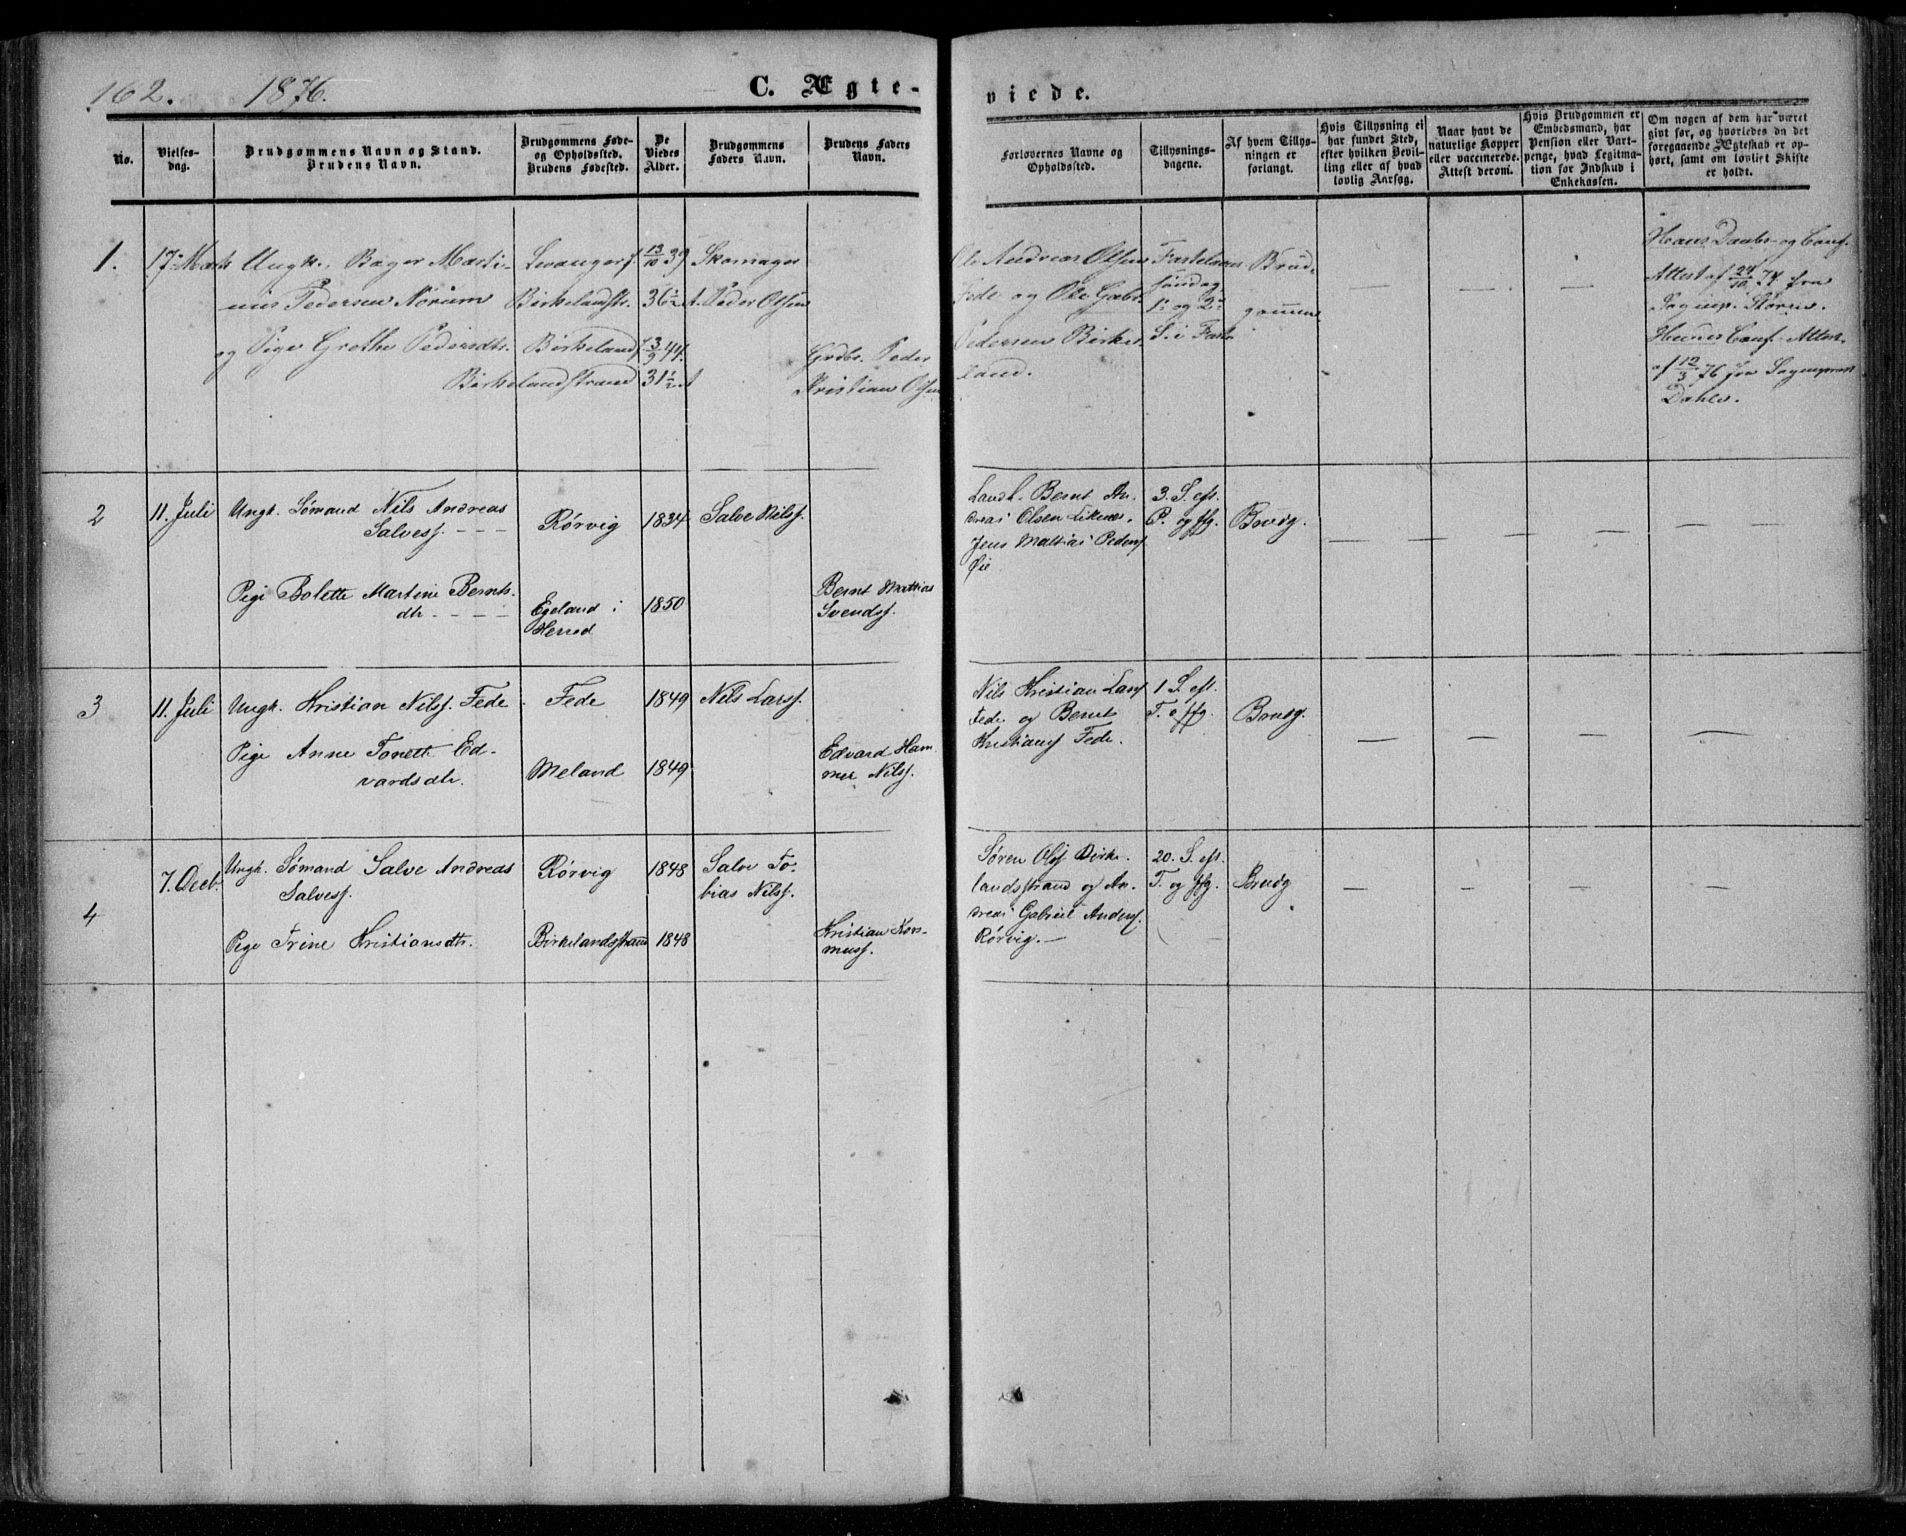 162. 1876. C. Ægte-
viede.
No.
Vielses-
dag.
Brudgommens Navn og Stand.
Brudens Navn.
Brudgommens Føde-
og Opholdssted.
Brudens Fødested.
De
Viedes
Alder.
Brudgommens
Faders Navn.
Brudens Faders
Navn.
Forlovernes Navne og
Opholdssted.
Tillysnings-
dagene.
Af hvem Tillys-
ningen er
forlangt.
Hvis Tillysning ei
har fundet Sted,
efter hvilken Bevil-
ling eller af hvad
lovlig Aarsag.
Naar havt de
naturlige Kopper
eller vaccinerede.
Attest derom.
Hvis Brudgommen er
Embedsmand, har
Pension eller Vart-
penge, hvad Legitima-
tion for Indskud i
Enkekassen.
Om nogen af dem har været
gift før, og hvorledes da det
foregaaende Ægteskab er op-
hørt, samt om lovligt Skifte
er holdt.
1.
17. Marts
Ungk. Bager Marti-
nus Pedersen Nørum
og Pige Grethe Pedersdtr.
Levanger f. 13/10 39
Birkelandsstr. 36 1/2 A.
Birkeland f. 3/9 44.
Birkelandstrand 31 1/2 A
Skomager
Peder Olsen
Grdbr. Peder
Kristian Olsen
Ole Andreas Olsen
Fede og Ole Gabr.
Pedersen Birke-
land.
Fastelavns
søndag
1. og 2.
S. i Faste
Brud-
gommen
Hans Daabs- og Conf.
Attest af 24/10 74 fra
Sognep. Støren.
Hendes Conf. Attest
af 12/3 76 fra Sognepræst
Dahle.
2
11. Juli
Ungk. Sømand Nils Andreas
Salvesf. - - -
Rørvig
1834
Salve Nilsf.
Pige Bolette Martine Bernts-
dtr. - - - -
Egeland i
Herred
1850
Bernt Mathias
Svendsf.
Landh. Bernt An-
dreas Olsen Eikenes.
Jens Mathias Pedersf
Øie
3. S. eft.
P. og flg.
Brudg.
3
11. Juli
Ungk. Kristian Nilsf. Fede
Fede
1849
Nils Larsf.
Pige Anne Tonette Ed-
vardsdtr.
Meland
1849
Edvard Ham-
mer Nilsf.
Nils Kristian Larsf
Fede og Bernt
Kristiansf Fede.
1 S. eft.
T. o flg.
Brudg.
4
7. Decb.
Ungk. Sømand Salve Andreas
Salvesf.
Rørvig
1848
Salve To-
bias Nilsf.
Pige Trine Kristiansdtr.
Birkelandsstrand
1848
Kristian Ras-
musf.
Søren Olsf Birke-
landsstrand og An-
dreas Gabriel Andersf.
Rørvig. —
20. S. eft.
T. og flg.
Brudg